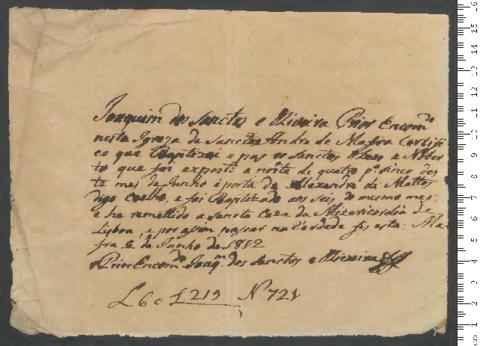 Joaquim dos Sanctos e Oliveira Prior Encom.do
nesta Igreja de Sancto Andre de Mafra Certifi
co que Baptizei e pus os Sanctos Oleos a Nober
to que foi exposto a noite de quatro p.a sinco des
te mes de Junho á porta de Alexandre de Mattos
digo Coelho, e foi Baptizado aos seis do mesmo mes:
e he remetido a Sancta Caza da Mizericordia de
Lisboa, e por assim passar na verdade fis esta: Ma
fra 6 de Junho de 1812
o Prior Encom.do Joaq.m dos Sanctos e Oliveira
L 60 f 219 N. 721